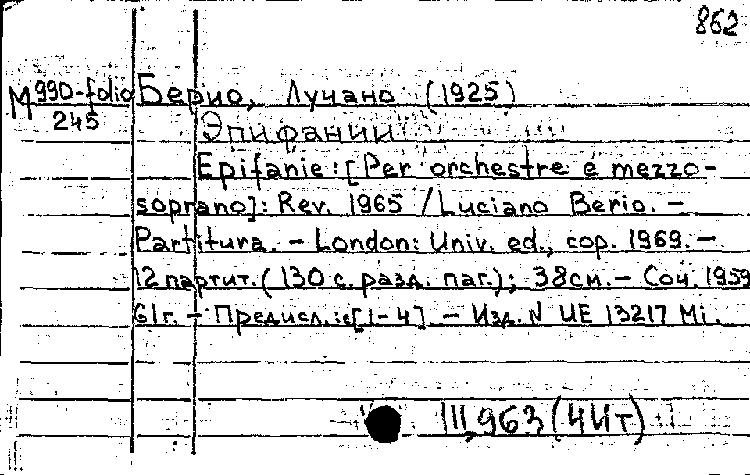 862
M 990-folio Берио, Лучано (1925)
245 Эпифании
Epifanie: [Per orchestre e mezzo-
soprano]: Rev. 1965 / Luciano Berio. –
Partitura. – London: Univ. ed., cop. 1969. –
12 партит. (130 с. разд. паг.); 38см. – Соч. 1959
61г. – Предисл.: с[1-4] – Изд. N UE 13217 Mi.
III,963(4Ит)